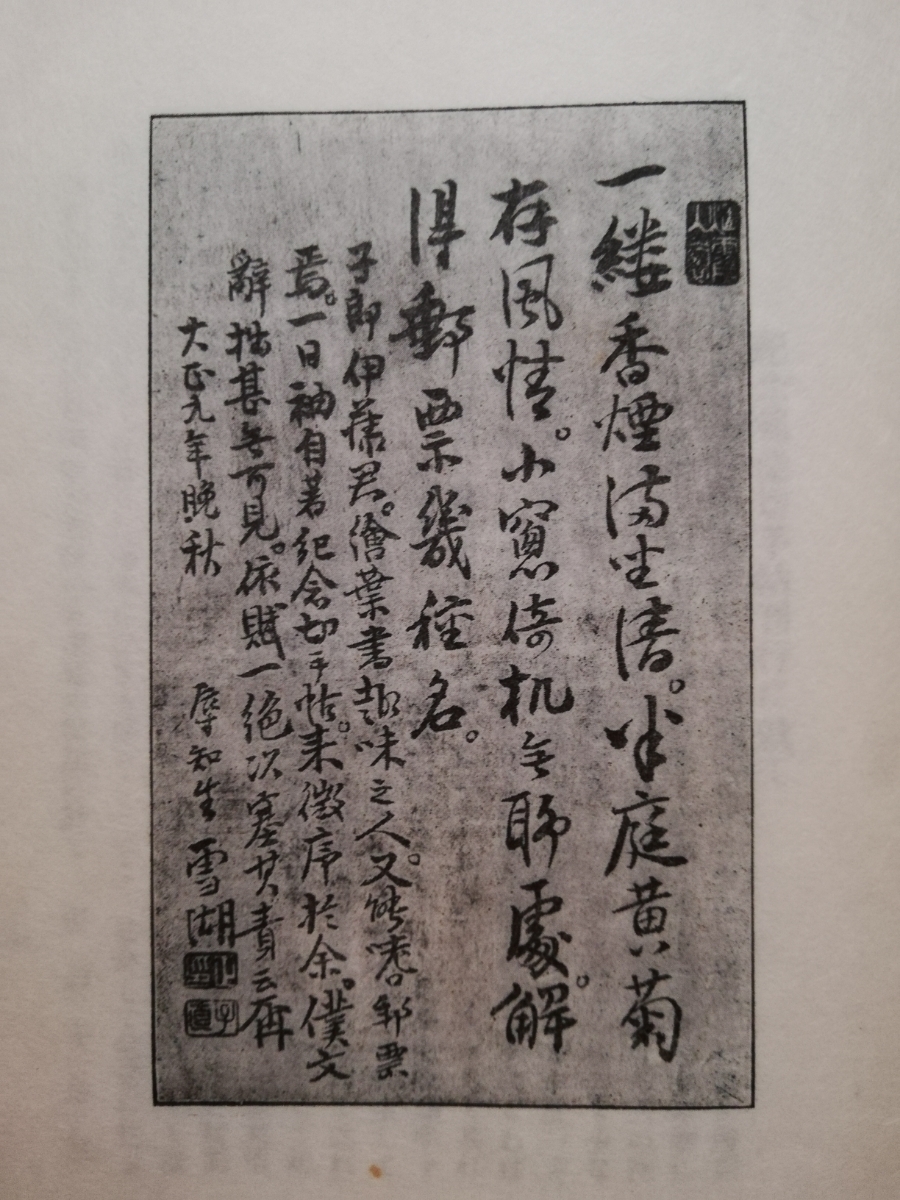 一縷香煙滿坐清。半庭黄菊
存風情。小窓倚机無聊處。解
得郵票幾種名。
子郎伊藤君。繪葉書趣味之人。又能嗜郵票
焉。一日袖自著紀念切手帖。来徴序於余。僕文
辭拙甚無可見。依賦一絶以塞其責云爾
大正九年晩秋
摩知生 雪湖